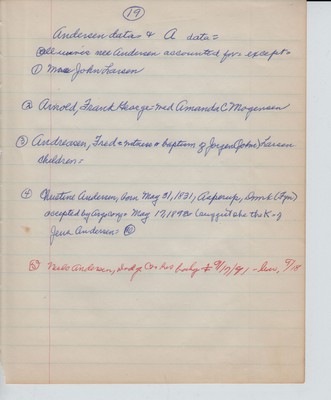 19
Andersen data & A data=
All wives nee Andersen accounted for except=
① Mrs John Larsen
② Arnold, Frank George=wed Amanda C. Mogensen
③ Andreasen, Fred = witness baptism of Jorgen (John) Larsen
children=
④ Christine Andersen, born May 31, 1831, Asperup, Denmk (Fyn)
accepted by May 17, 1898= (suggest she the K of
Jens Andersen=
⑤ Niels Andersen, Dodge Co